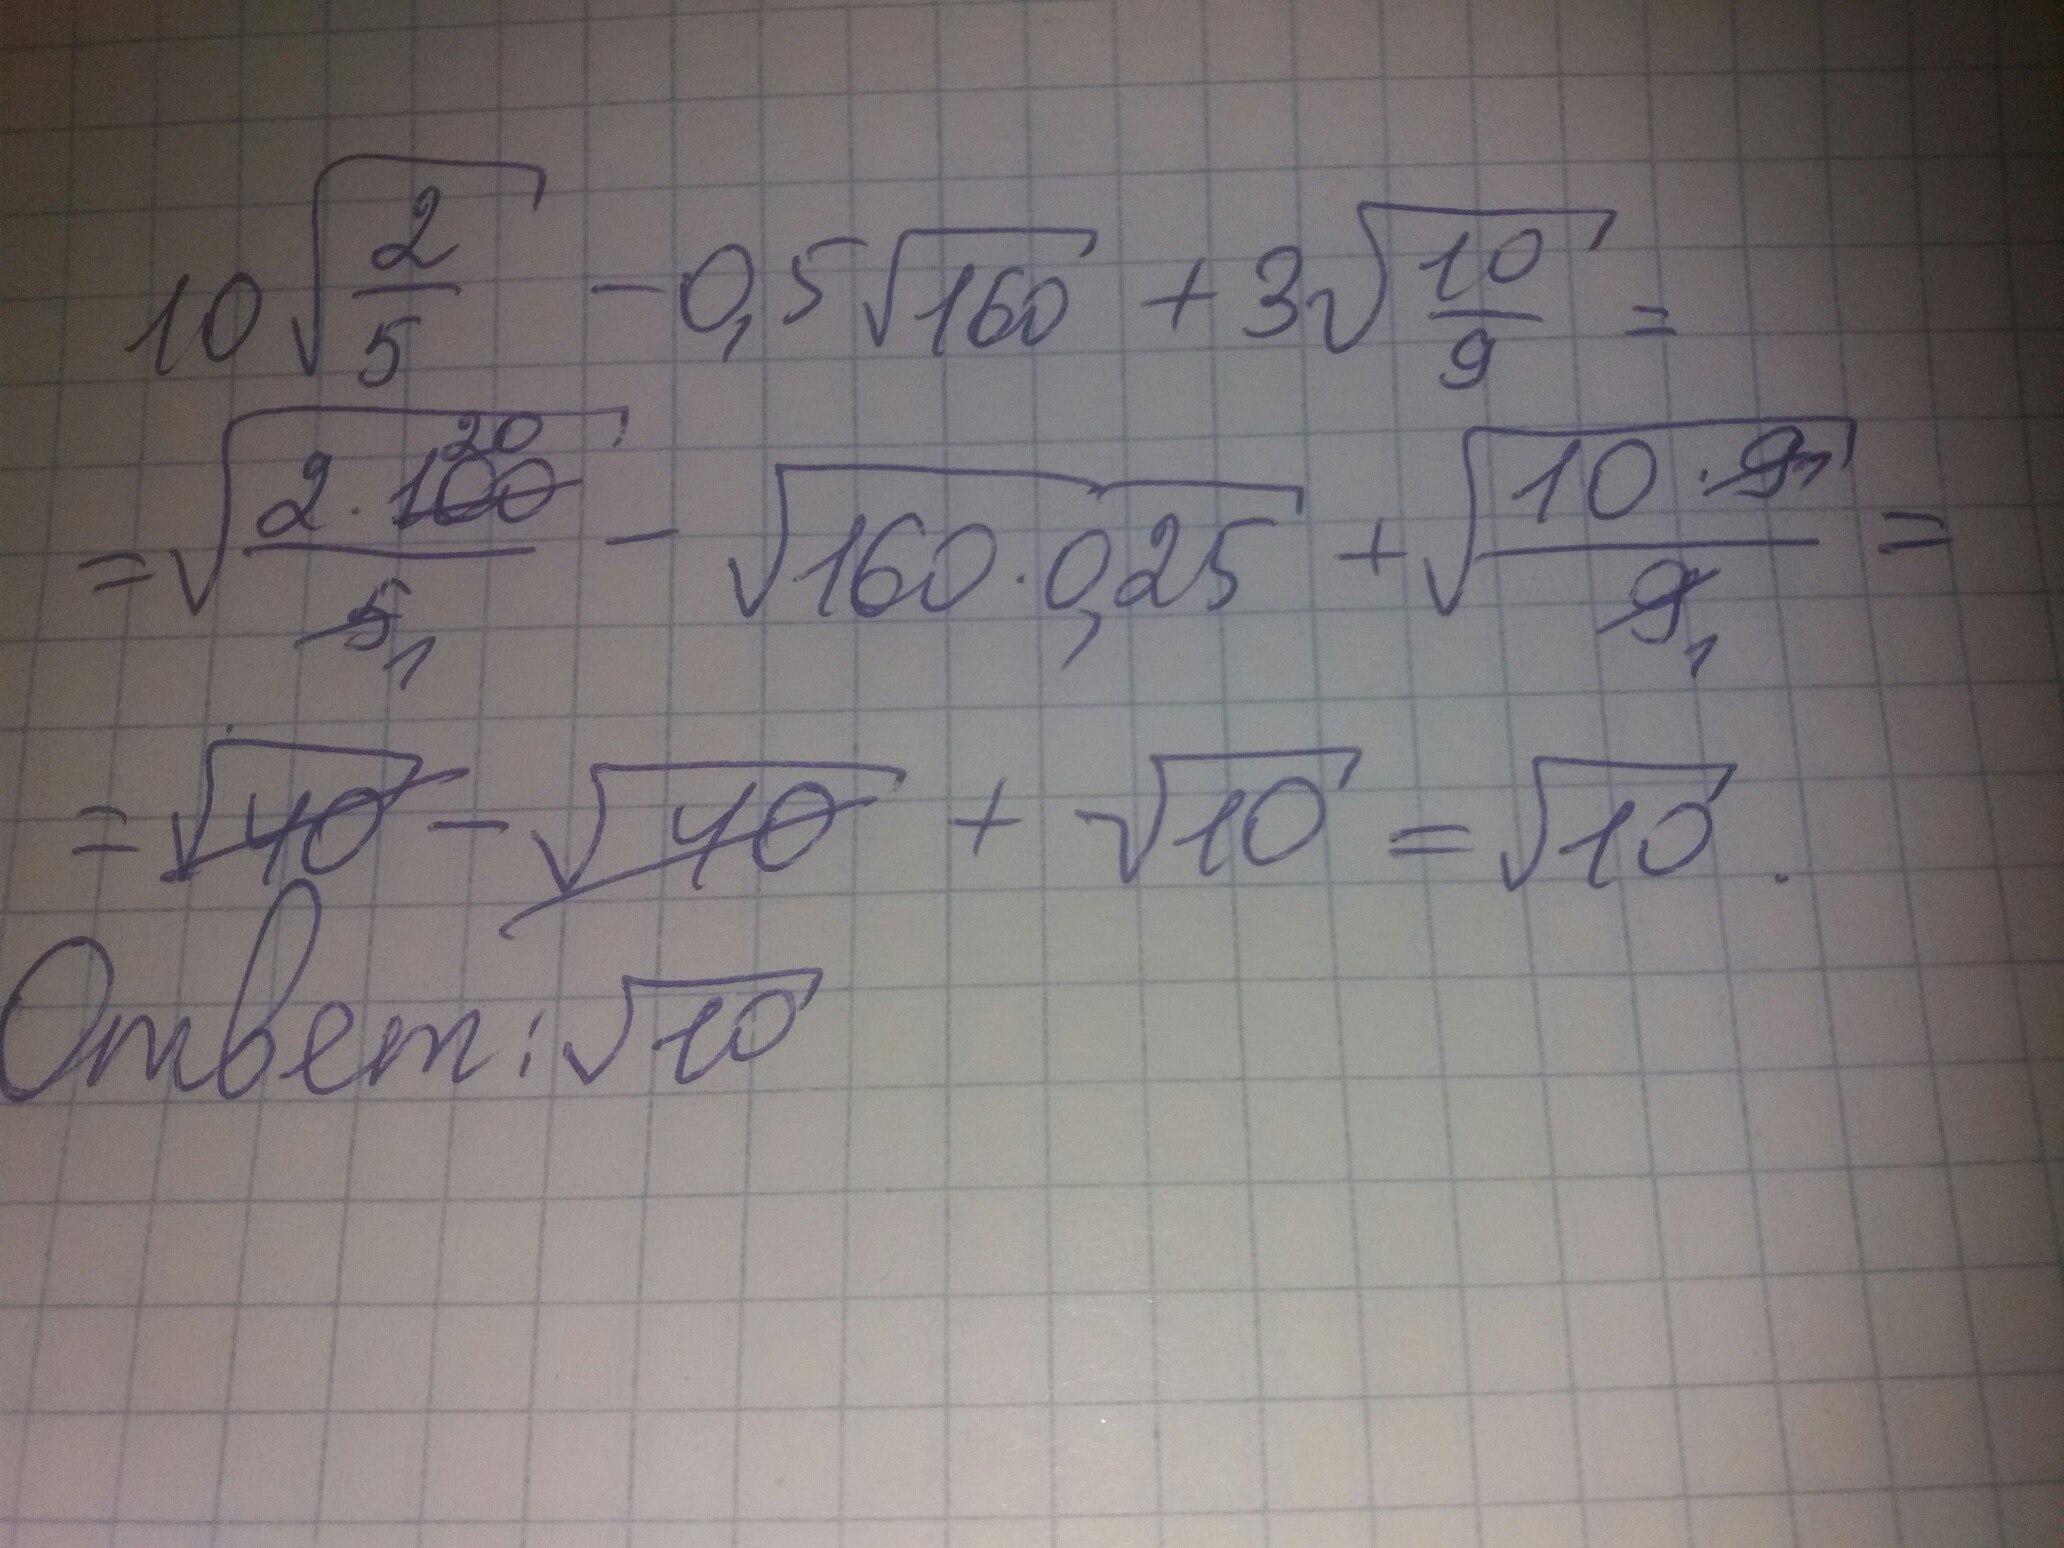 10√(2/5) - 0,5√160 + 3√(10/9) =
= √(2·100/5) - √(160·0,25) + √(10·9/9) =
= √40 - √40 + √10 = √10.
Ответ: √10